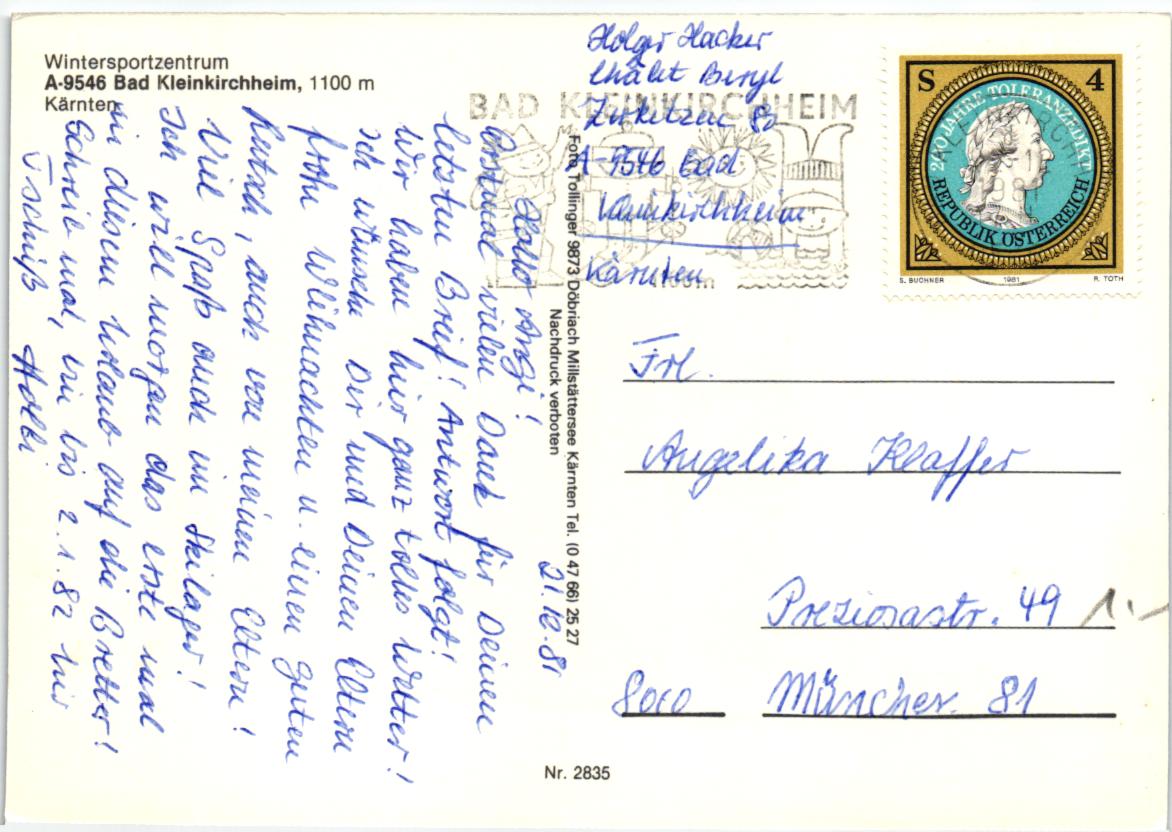 Wintersportzentrum
A-9546 Bad Kleinkirchheim, 1100 m
Kärnten
21.12.81
Hallo Angi!
Erstmal vielen Dank für Deinen
letzten Brief! Antwort folgt!
Wir haben hier ganz tolles Wetter!
Ich wünsche Dir und Deinen Eltern
frohe Weihnachten u. einen guten
Rutsch, auch von meinen Eltern!
Viel Spaß auch im Skilager!
Ich will morgen das erste mal
in diesem Urlaub auf die Bretter!
Schreib mal, bin bis 2.1.82 hier
Tschüß Holli
Foto Tollinger 9873 Döbriach Millstättersee Kärnten Tel. (0 47 66) 25 27
Nachdruck verboten
Holger Hacker
Chalet Beryl
Zirkitzen 82
A-9546 Bad
Kleinkirchheim
Kärnten
BAD KLEINKIRCHHEIM
S 4
200 JAHRE TOLERANZEDIKT
REPUBLIK ÖSTERREICH
S. BUCHNER 1981 R. TOTH
Frl.
Angelika Klaffer
Preziosastr. 49
1.-
8000 München 81
Nr. 2835